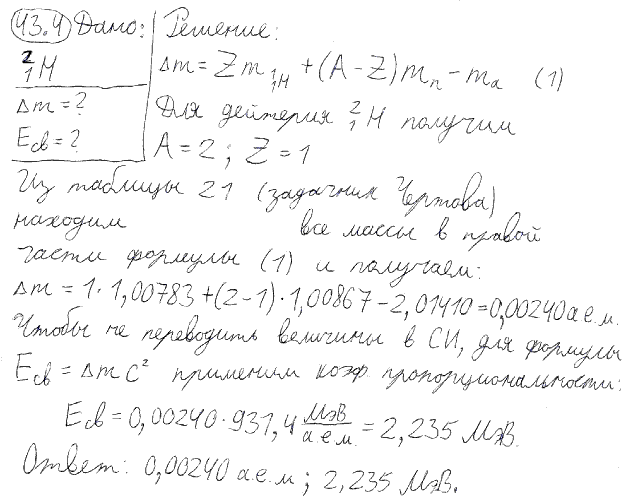 43.4 Дано: Решение:
²₁H
Δm = Zm₁₁H + (A − Z)mₙ − mₐ (1)
Δm = ?
Eсв = ?
Для дейтерия ²₁H получим
A = 2; Z = 1
Из таблицы 21 (задачник Чертова)
находим все массы в правой
части формулы (1) и получаем:
Δm = 1·1,00783 + (2−1)·1,00867 − 2,01410 = 0,00240 а.е.м.
Чтобы не переводить величины в СИ, для формулы
Eсв = Δmc² применим коэф. пропорциональности:
Eсв = 0,00240·931,4 МэВ/а.е.м = 2,235 МэВ.
Ответ: 0,00240 а.е.м; 2,235 МэВ.